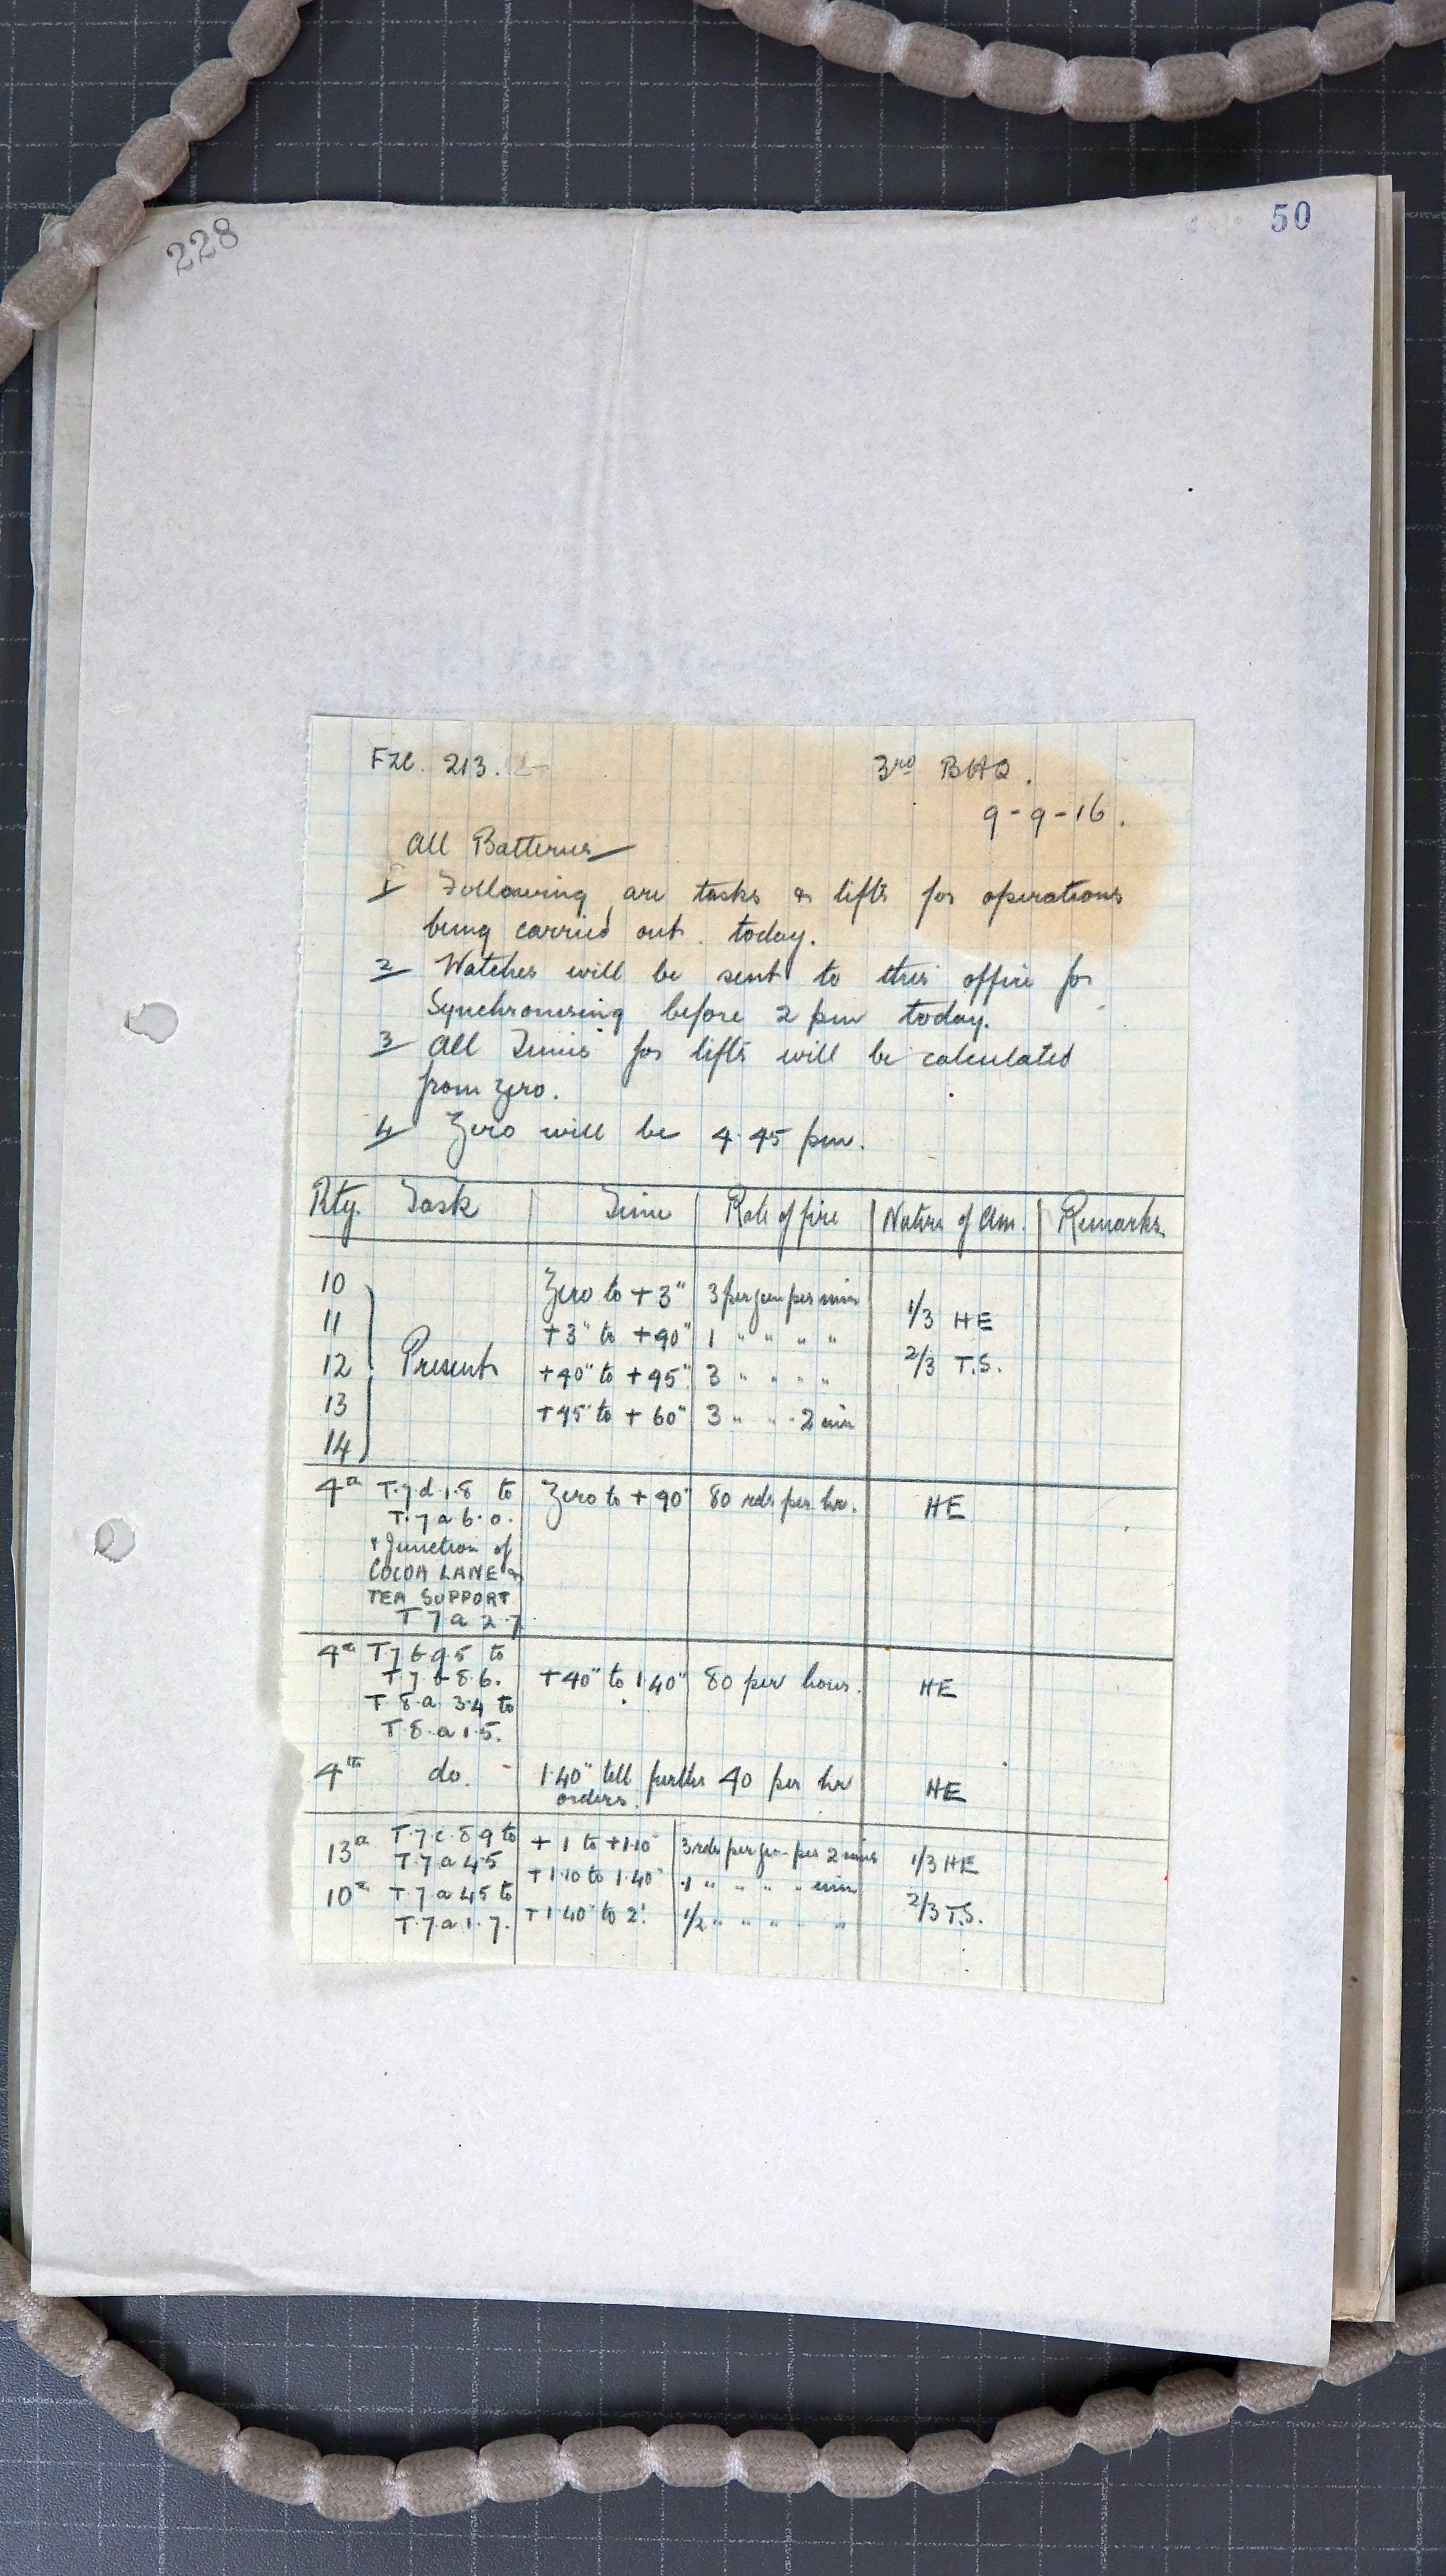 228
50
FZC. 213.
3rd BHQ.
9-9-16.
All Batteries
1 Following are tasks & lifts for operations
being carried out. today.
2 Watches will be sent to this office for
Synchronising before 2 pm today.
3 All Times for lifts will be calculated
from zero.
4 Zero will be 4.45 pm.
Bty. Task Time Rate of fire Nature of Am. Remarks.
10 Zero to +3" 3 per gun per min 1/3 HE
11 +3" to +40" 1 " " " "
12 Present +40" to +45" 3 " " " " 2/3 T.S.
13 +45" to +60" 3 " " 2 min
14
4th T.7.d.1.8 to Zero to +40" 80 rds per hr. HE
T.7.a.6.0.
& Junction of
COCOA LANE &
TEA SUPPORT
T 7 a 2.7
4th T7 b 9.5 to
T7 b 8.6. +40" to 1.40" 80 per hour. HE
T 8.a 3.4 to
T 8.a 1.5.
4th do. 1.40" till further 40 per hr HE
orders.
13th T.7.c.8.9 to +1 to +1.10" 3 rds per gun per 2 mins 1/3 HE
T.7.a 4.5 +1.10 to 1.40" 1 " " " " min
10th T.7 a 4.5 to
T.7.a.1.7. +1.40" to 2'. 1/2 " " " " " 2/3 T.S.